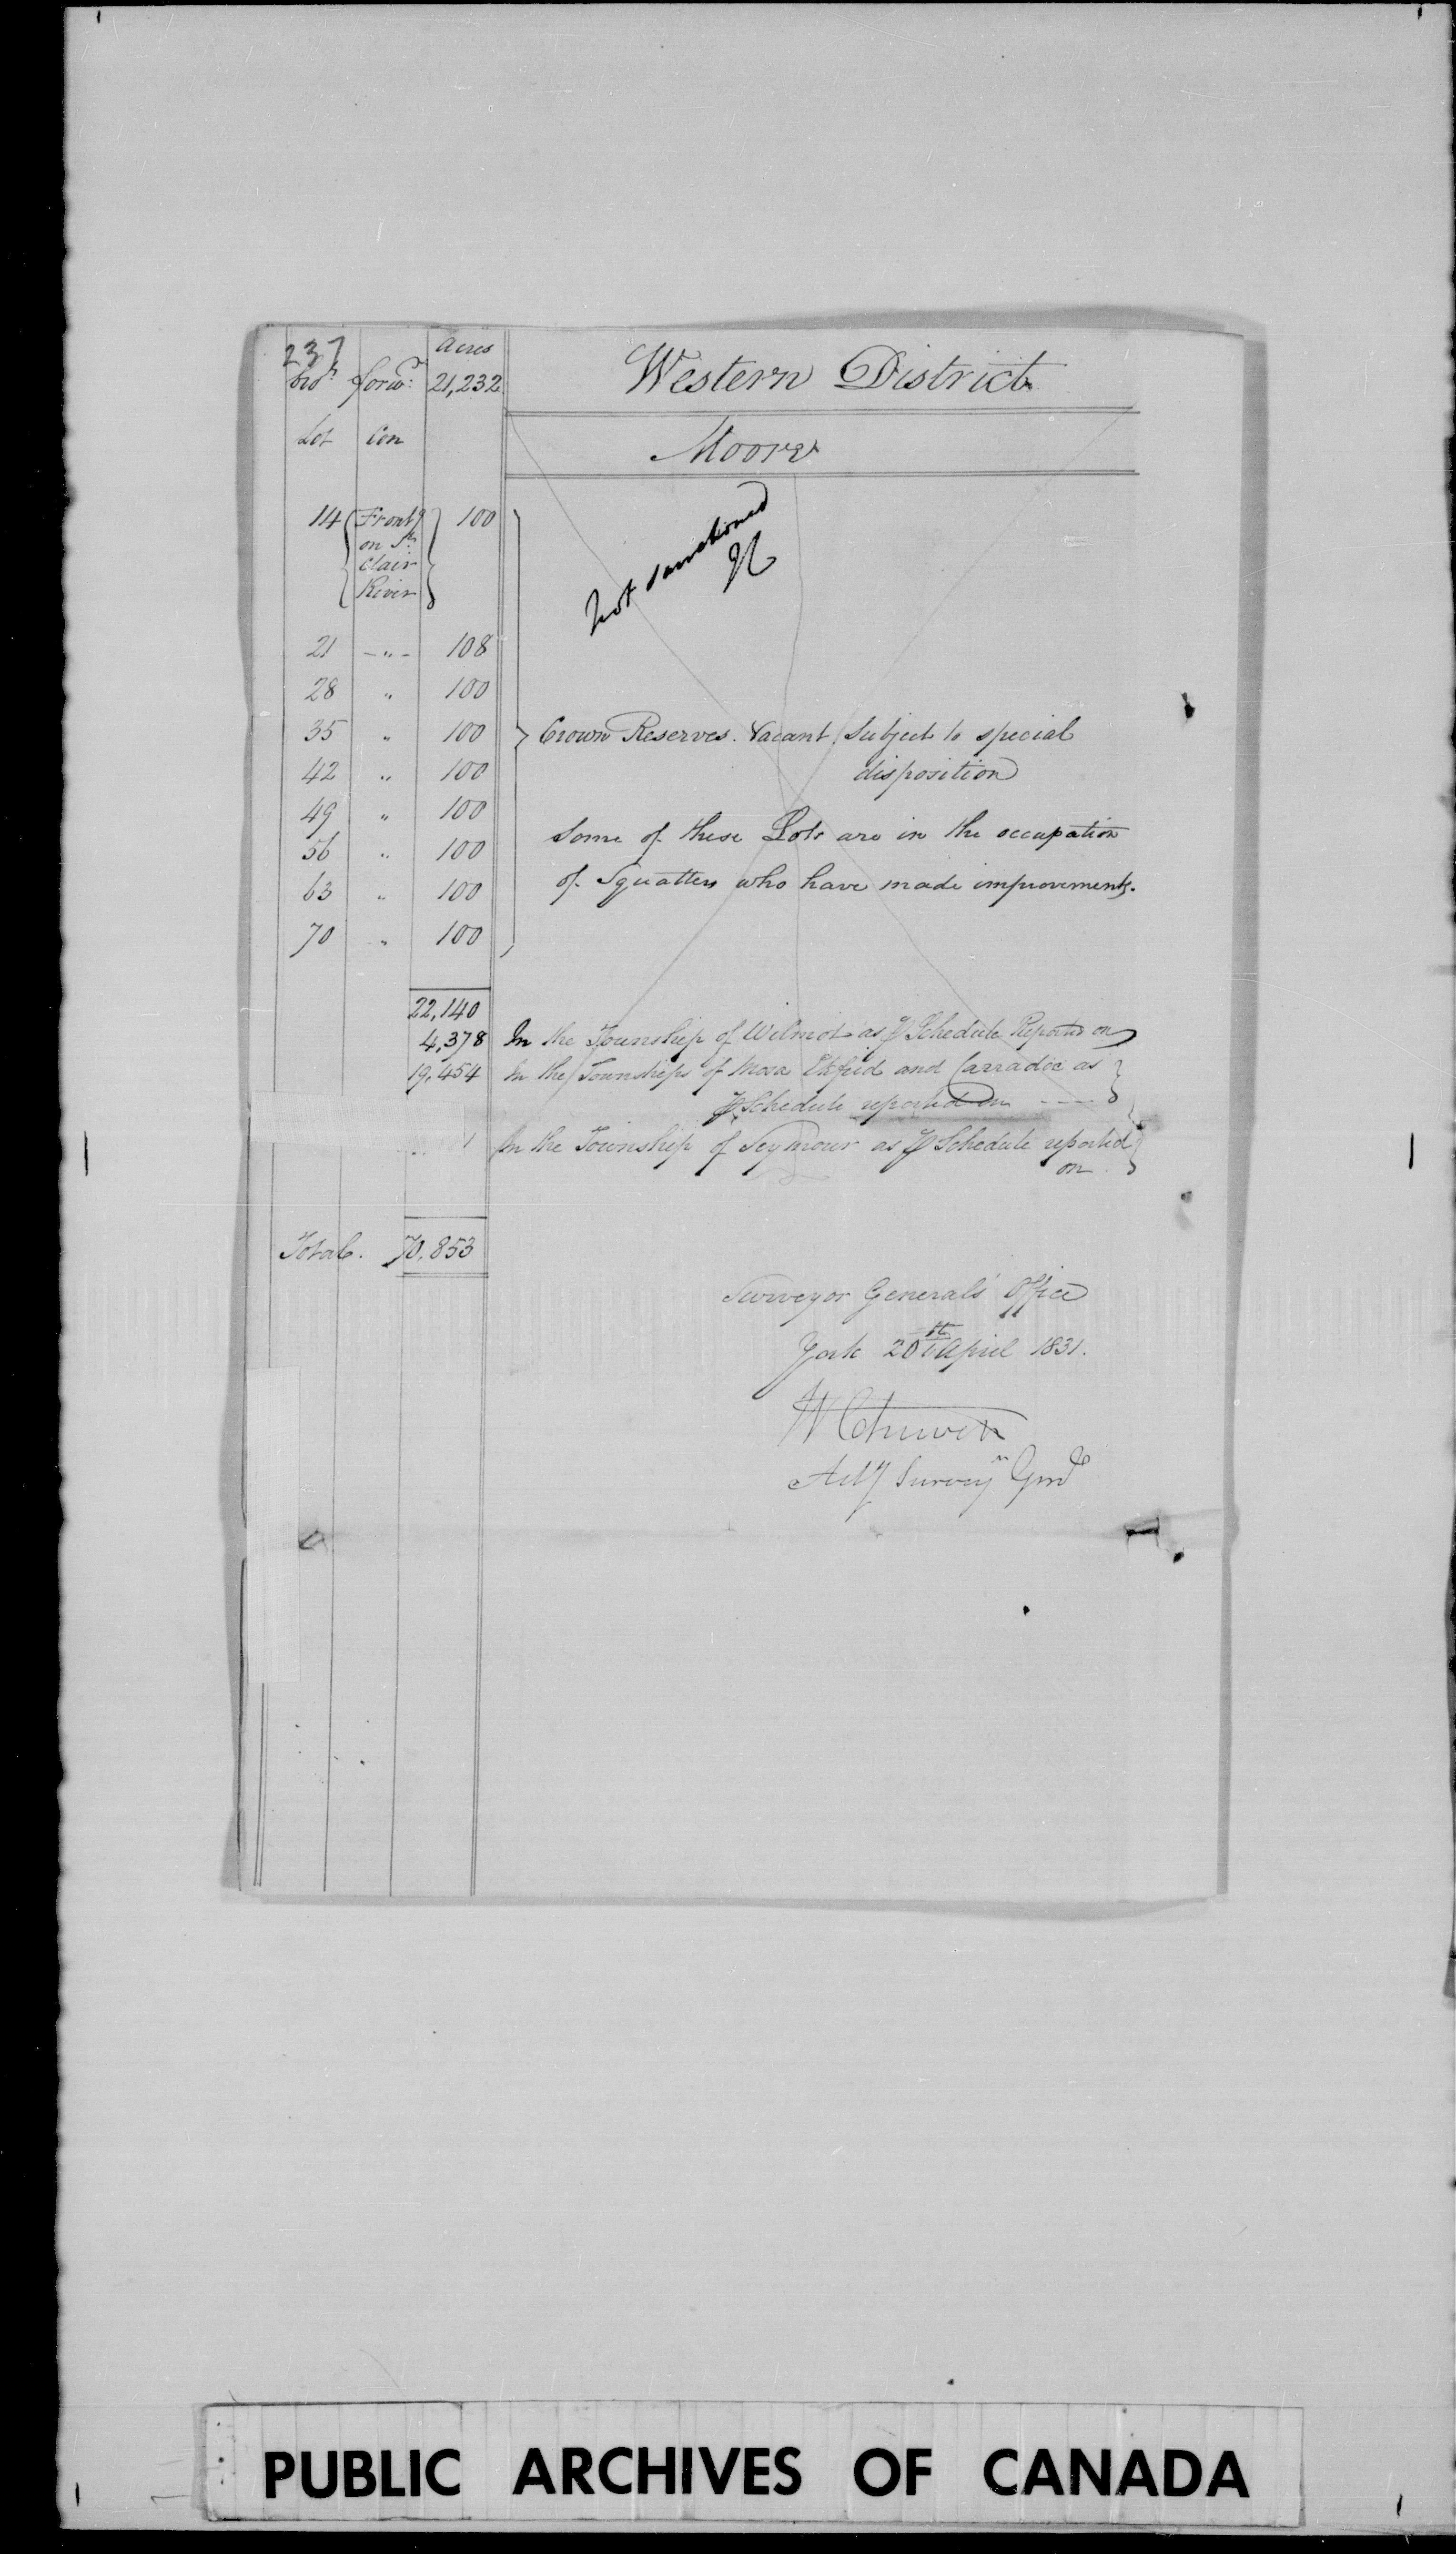 237
Acres
Brot forwd: 21,232
Western District
Lot Con
Moore
14 Front 100
on St.
Clair
River
not sanctioned
21 -"- 108
28 " 100
35 " 100 Crown Reserves. Vacant Subject to special
42 " 100 disposition
49 " 100
Some of these Lots are in the occupation
56 " 100
of Squatters who have made improvements.
63 " 100
70 " 100
22,140
4,378 In the Township of Wilmot as Schedule Reported on
19,454 In the Townships of Mosa Ekfrid and Carradoc as
Schedule reported on ----
In the Township of Seymour as Schedule reported
on
Total. 70,853
Surveyor General's Office
York 20th April 1831.
W Chewett
Actg Surveyr Genl
PUBLIC ARCHIVES OF CANADA